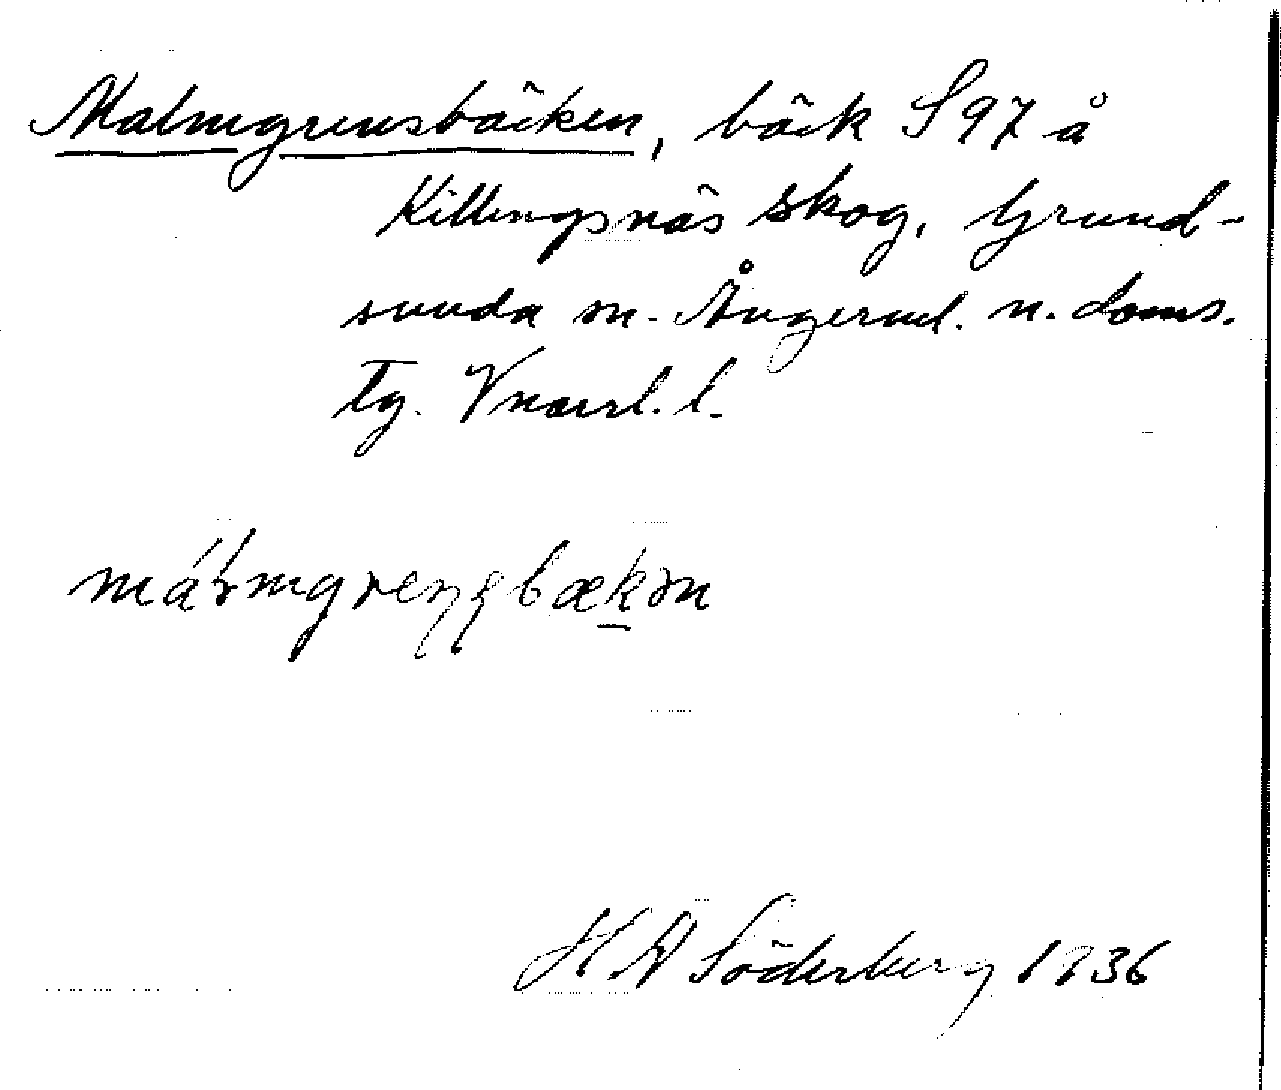 Malmgrensbäcken, bäck S 97 å
Killingsnäs skog, Grund-
sunda sn. Ångerml. n. doms.
tg. Vnorrl. l.
málmgrensbækən
H A Söderberg 1936